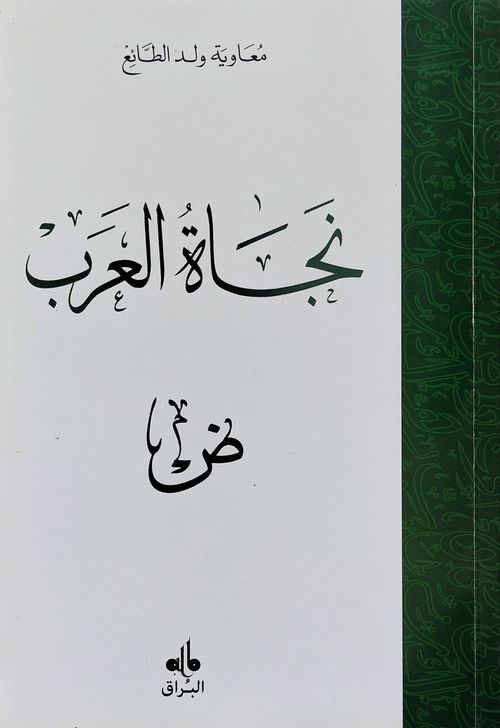 مُعَاوِيَة وِلد الطَّائِعْ
نَجَاةُ العَرَب
ض
البُراق